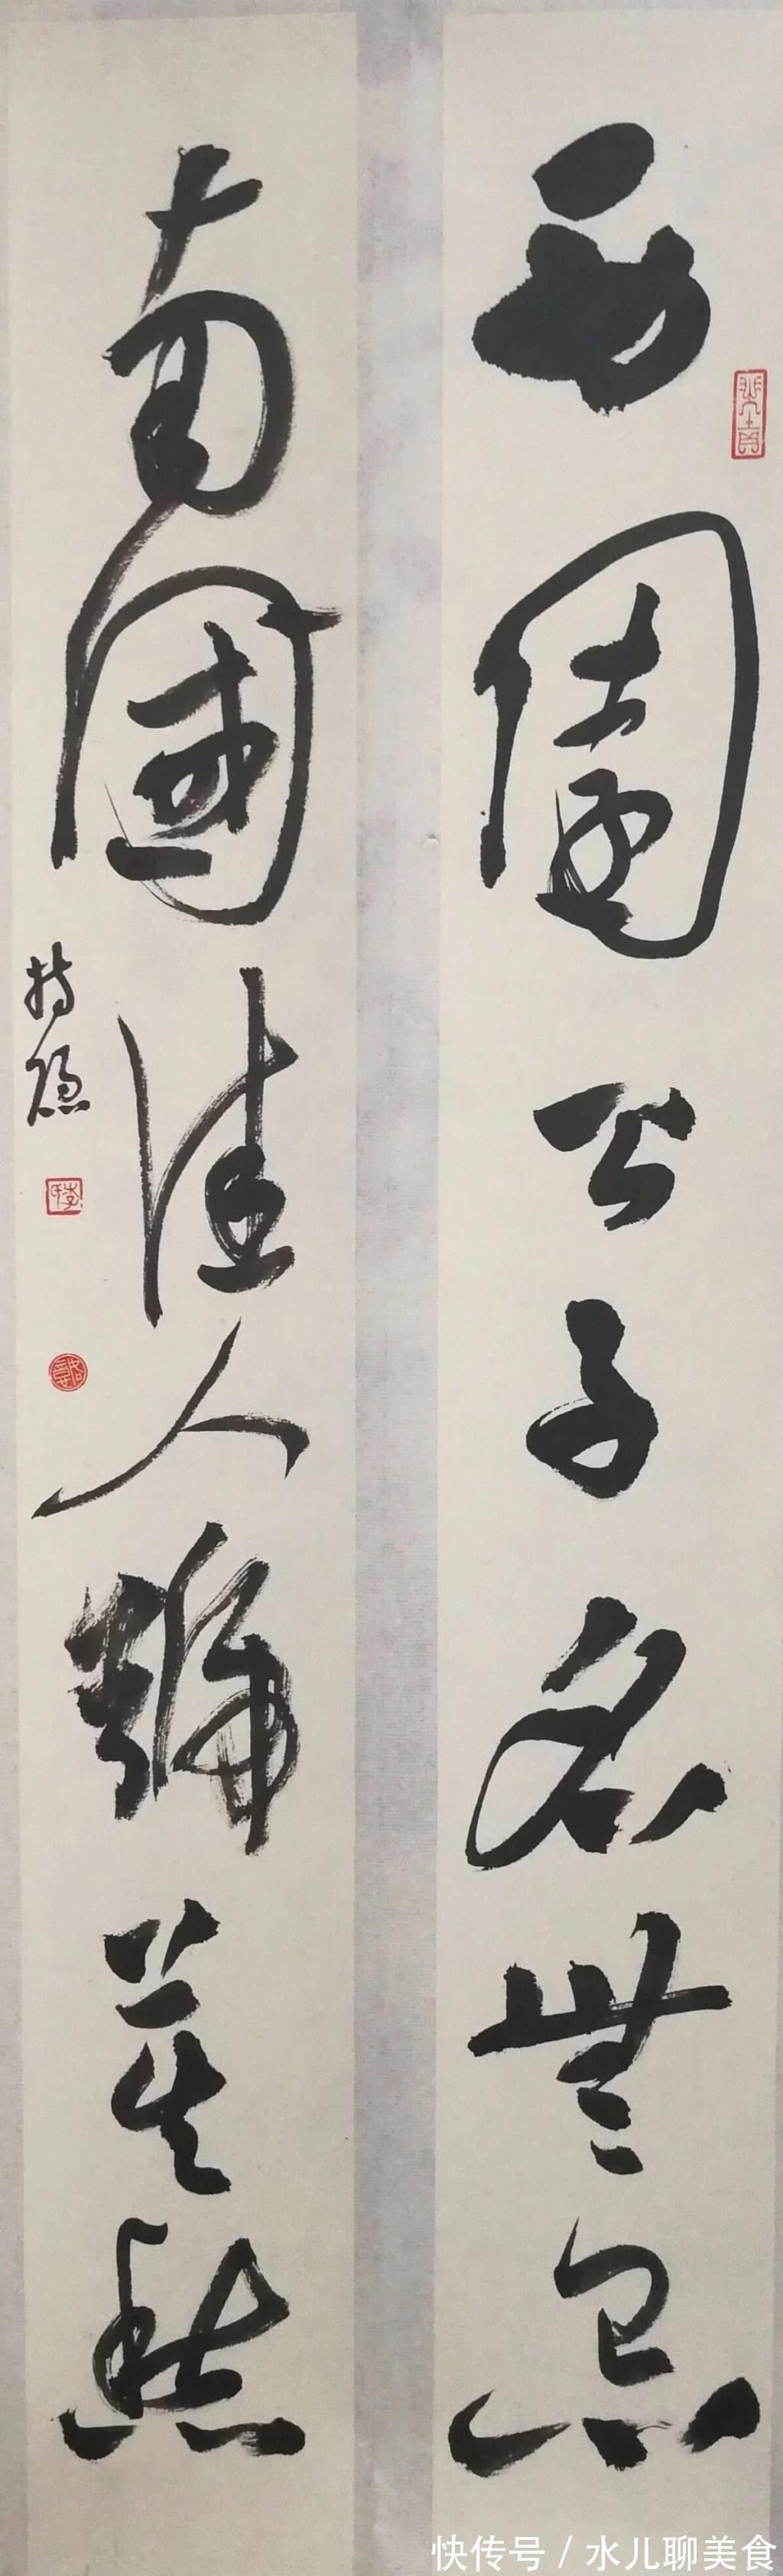 西園公子名無忌
南國佳人號莫愁
持隱
快传号 / 水儿聊美食